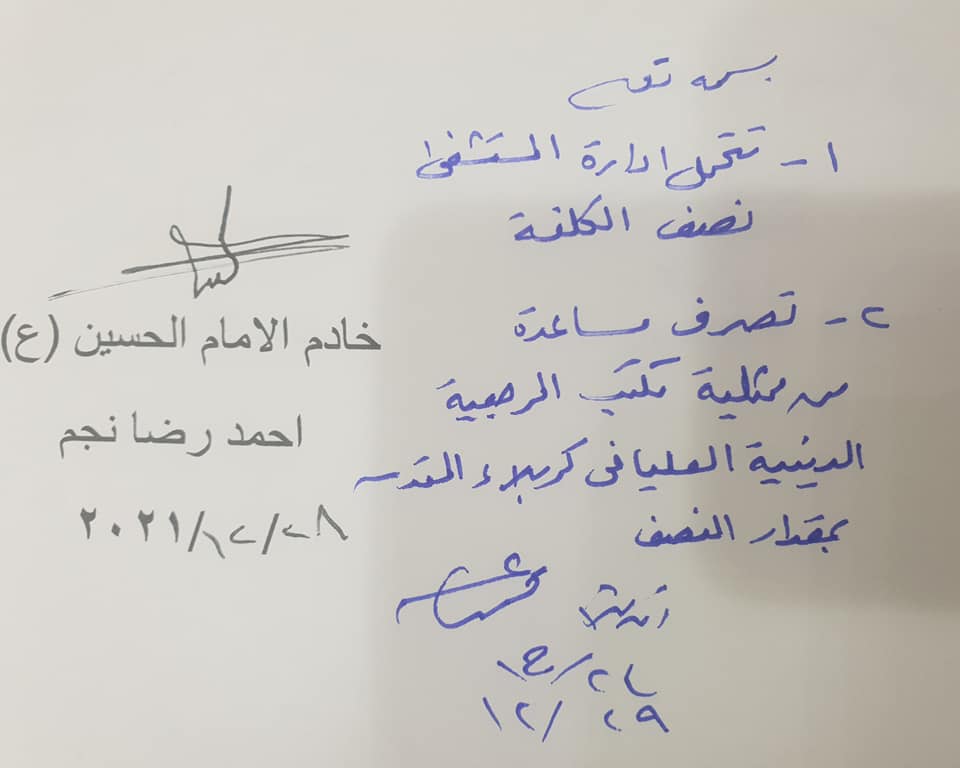 بسمه تعـ
١- تتحمل ادارة المستشفى
نصف الكلفة
٢- تصرف مساعدة
من ممثلية مكتب المرجعية
الدينية العليا في كربلاء المقدسه
بمقدار النصف
٢٩ / ١٢
خادم الامام الحسين (ع)
احمد رضا نجم
٢٠٢١/١٢/٢٨